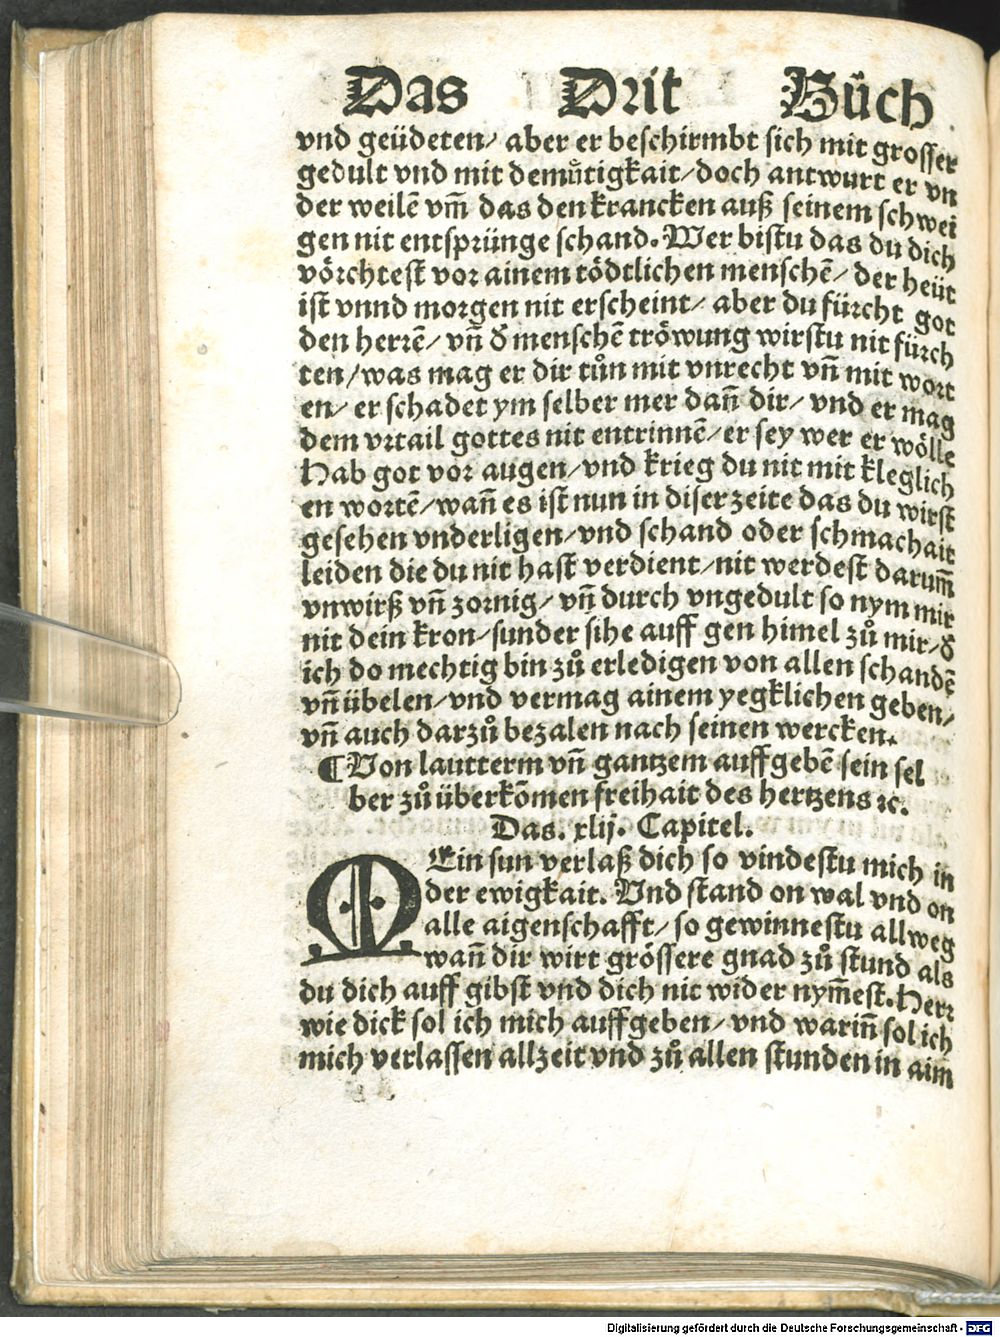 Das Drit Bůch
vnd geüdeten/ aber er beschirmbt sich mit grosser
gedult vnd mit demůtigkait/ doch antwurt er vn
der weilē vm̄ das den krancken auß seinem schwei
gen nit entsprünge schand. Wer bistu das du dich
vörchtest vor ainem tödtlichen menschē/ der heüt
ist vnnd morgen nit erscheint/ aber du fürcht got
den herrē/ vn̄ ð menschē tröwung wirstu nit fürch
ten/ was mag er dir tůn mit vnrecht vn̄ mit wort
en/ er schadet ym selber mer dan̄ dir/ vnd er mag
dem vrtail gottes nit entrinnē/ er sey wer er wölle
Hab got vor augen/ vnd krieg du nit mit kleglich
en wortē/ wan̄ es ist nun in diser zeite das du wirst
gesehen vnderligen/ vnd schand oder schmachait
leiden die du nit hast verdient/ nit werdest darum̄
vnwirß vn̄ zornig/ vn̄ durch vngedult so nym mir
nit dein kron/ sunder sihe auff gen himel zů mir/ ð
ich do mechtig bin zů erledigen von allen schandē
vn̄ übelen/ vnd vermag ainem yegklichen geben/
vn̄ auch darzů bezalen nach seinen wercken.
¶ Von lautterm vn̄ gantzem auffgebē sein sel
ber zů überkōmen freihait des hertzens ꝛc.
Das. xlij. Capitel.
MEin sun verlaß dich so vindestu mich in
der ewigkait. Vnd stand on wal vnd on
alle aigenschafft/ so gewinnestu allweg
wan̄ dir wirt grössere gnad zů stund als
du dich auff gibst vnd dich nit wider nym̄est. Herr
wie dick sol ich mich auffgeben/ vnd warin̄ sol ich
mich verlassen allzeit vnd zů allen stunden in aim
Digitalisierung gefördert durch die Deutsche Forschungsgemeinschaft - DFG